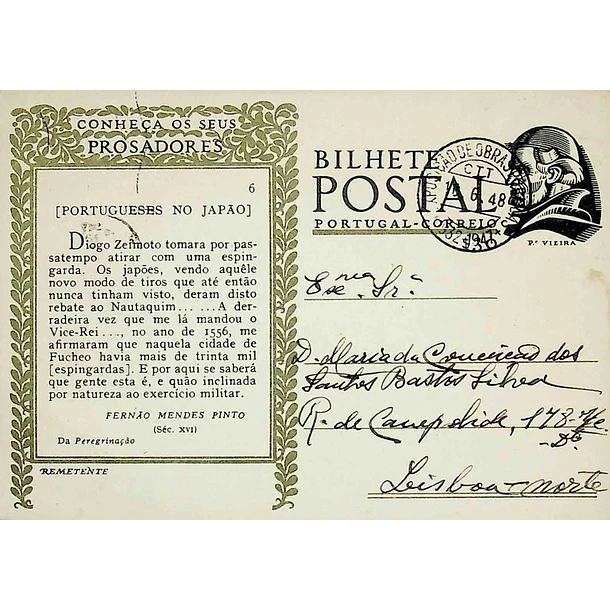 CONHEÇA OS SEUS
PROSADORES
6
[PORTUGUESES NO JAPÃO]
Diogo Zeimoto tomara por pas-
satempo atirar com uma espin-
garda. Os japões, vendo aquêle
novo modo de tiros que até então
nunca tinham visto, deram disto
rebate ao Nautaquim... ... A der-
radeira vez que me lá mandou o
Vice-Rei..., no ano de 1556, me
afirmaram que naquela cidade de
Fucheo havia mais de trinta mil
[espingardas]. E por aqui se saberá
que gente esta é, e quão inclinada
por natureza ao exercício militar.
FERNÃO MENDES PINTO
(Séc. XVI)
Da Peregrinação
REMETENTE
BILHETE
POSTAL
PORTUGAL-CORREIO
CTT
48
P.e VIEIRA
Exma Sr.ª
D. Maria da Conceição dos
Santos Bastos Silva
R. de Campolide, 178-
Lisboa-norte